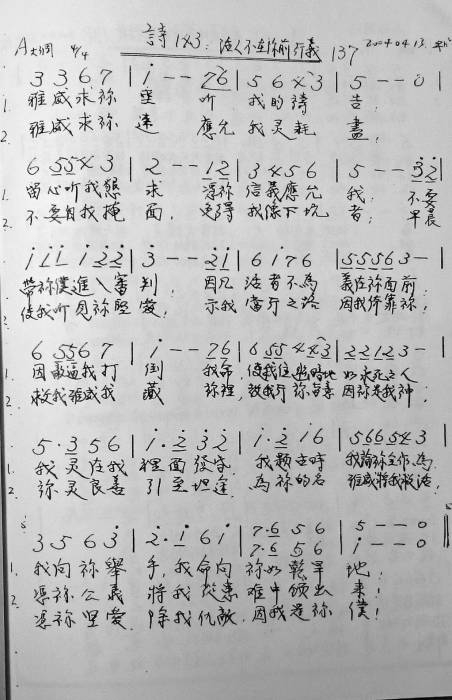 詩 143: 活人不在你前行義 137 2004.04.13.
A大調 4/4
3 3 6 7 | i - - 7 6 | 5 6 4 3 | 5 - - 0 |
1. 雅威求祢 垂 听 我的禱 告,
2. 雅威求祢 速 應允 我灵耗 盡,
6 5 5 4 3 | 2 - - 1 2 | 3 4 5 6 | 5 - - 3 2 |
1. 留心听我懇 求 憑祢 信義應允 我, 不要
2. 不要自我掩 面, 免得 我像下坑 者, 早晨
i i i i 2 2 | 3 - - 2 i | 6 i 7 6 | 5 5 5 6 3 - |
帶祢僕進入審 判, 因凡 活者不為 義在祢面前.
使我听見祢堅 愛, 示我 當行之路 因我倚靠祢,
6 5 5 6 7 | i - - 7 6 | 6 5 5 4 4 3 | 2 2 1 2 3 - |
因敵逼我打 倒 我命, 使我住幽暗地 如久死之人
救我雅威我 藏 祢裡, 教我行祢旨意 因祢是我神,
5 · 3 5 6 | i · 2 3 2 | i · 2 i 6 | 5 6 6 5 4 3 |
1. 我灵在我 裡面發昏, 我題古時 我論祢工作為,
2. 祢灵良善 引至坦途, 為祢的名 雅威將我救活,
3 5 6 3 | 2 · i 6 i | 7 · 6 5 6 | 5 - - 0
7 · 6 5 6 | i - - 0 ‖
1. 我向祢舉 手, 我命向 祢如乾旱 地!
2. 憑祢公義 將我 從患 难中領出 來!
憑祢堅愛 除我仇敵, 因我是祢 僕!